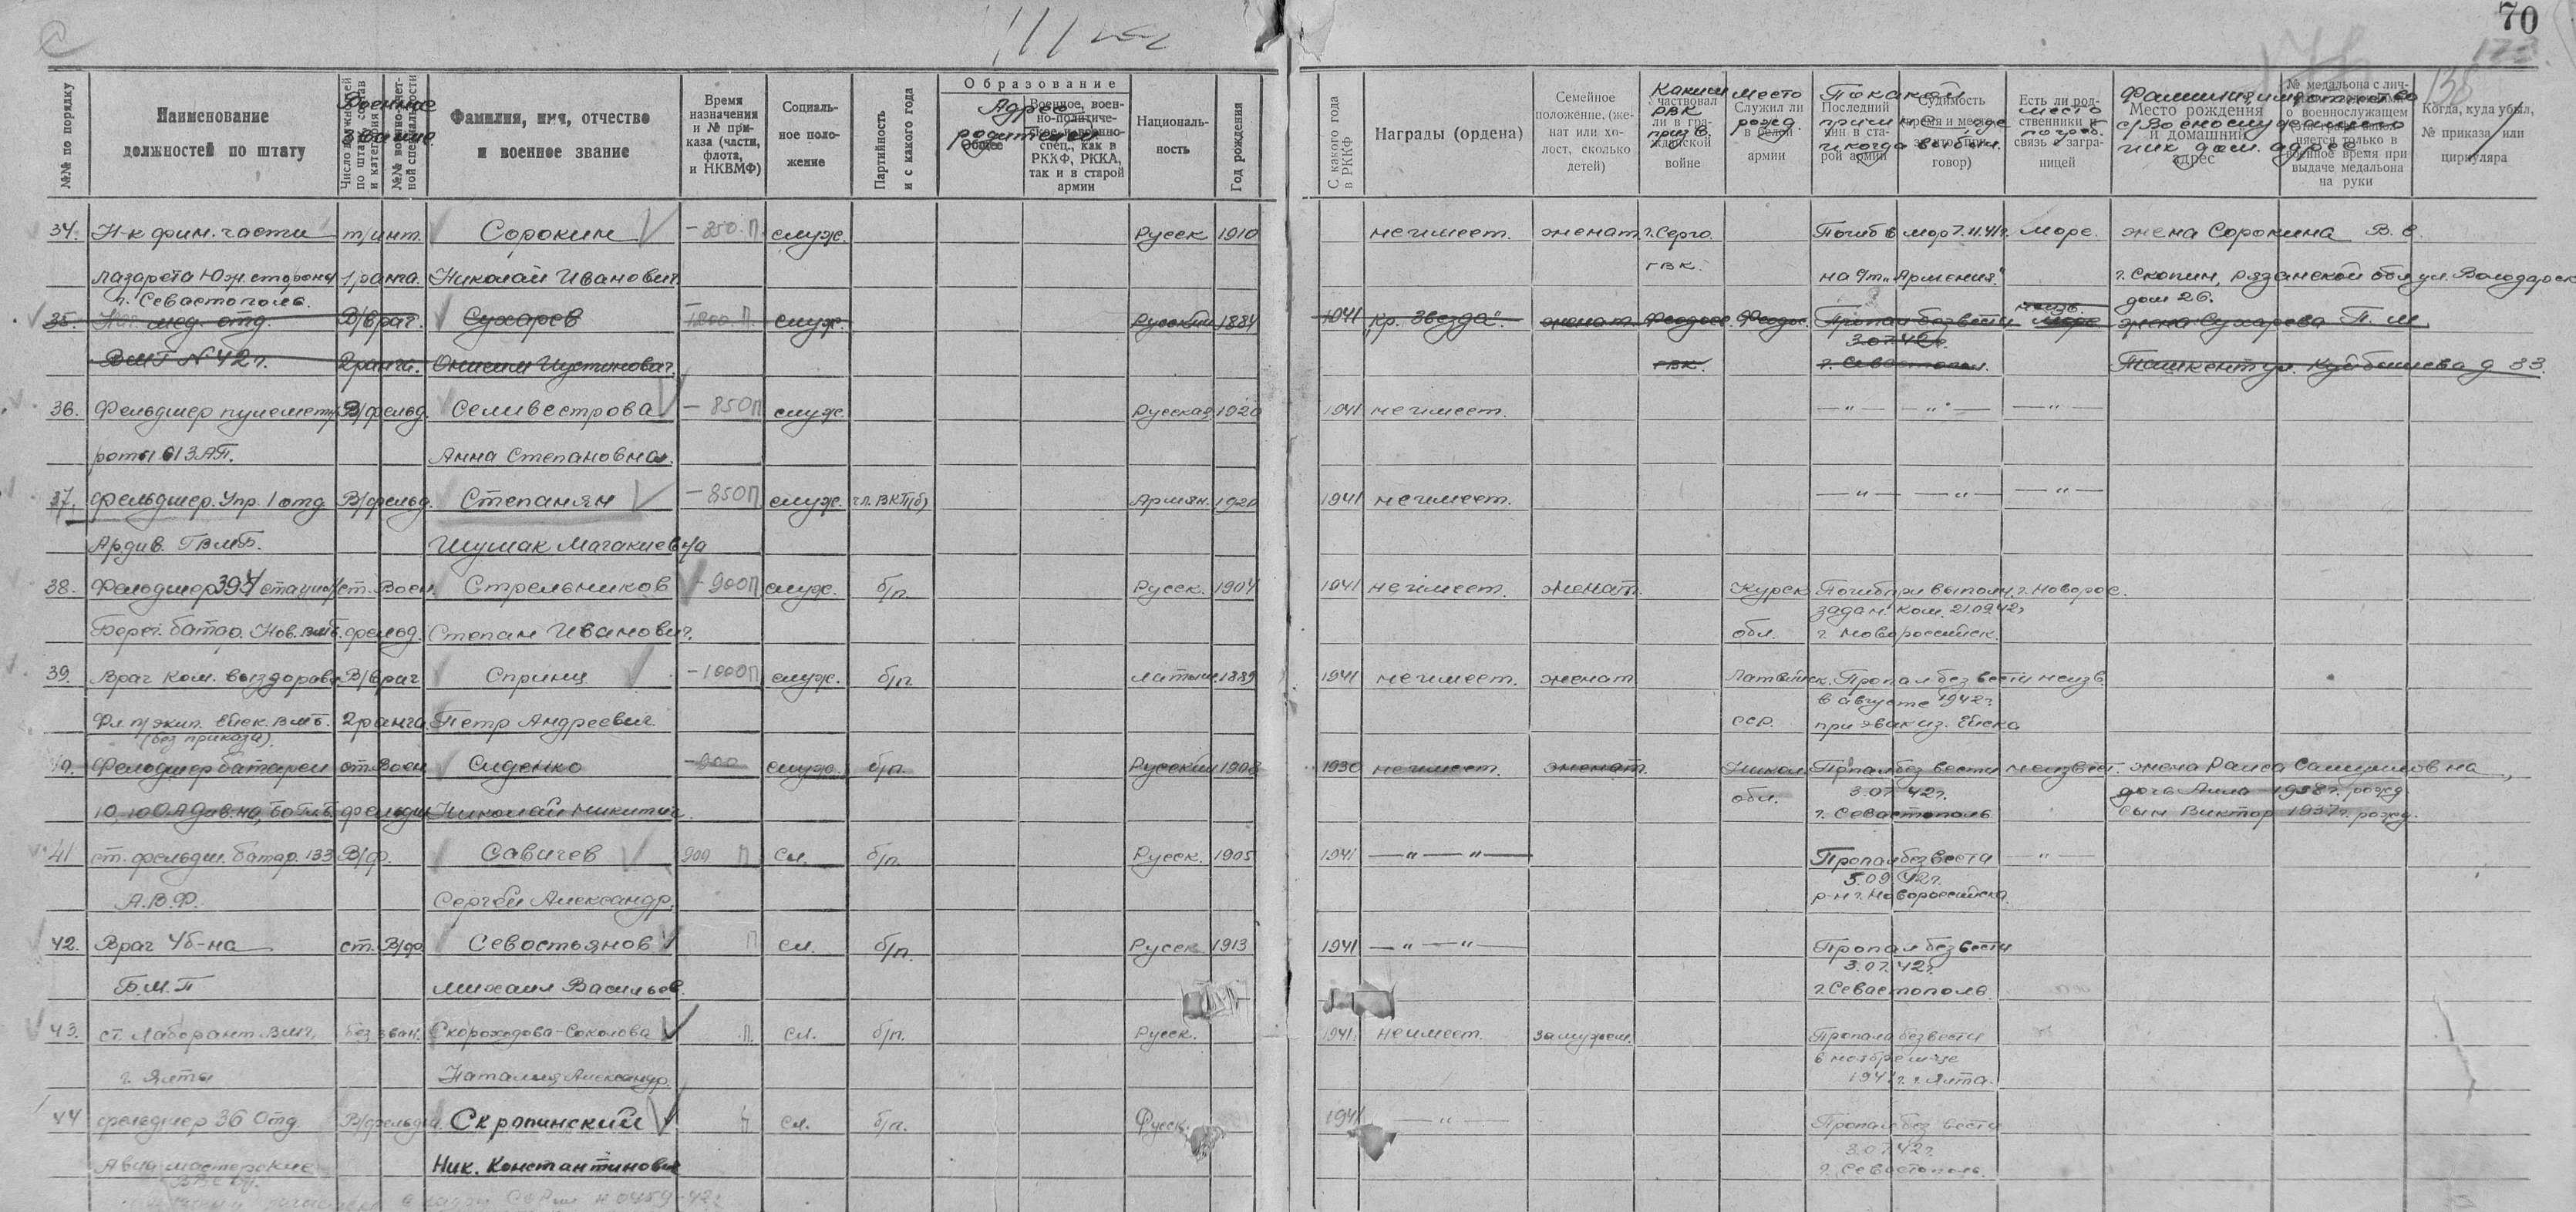 70
№№ по порядку
Наименование должностей по штату
Военное звание
Фамилия, имя, отчество и военное звание
Время назначения и № приказа (части, флота, и НКВМФ)
Социальное положение
Партийность и с какого года
Образование
Адрес родителей
Общее
Военное, военно-политическое, военно-спец., как в РККФ, РККА, так и в старой армии
Националь-ность
Год рождения
С какого года в РККФ
Награды (ордена)
Семейное положение, (женат или холост, сколько детей)
Каким РВК призв.
Участвовал ли в гражданской войне
место рожд.
Служил ли в белой армии
По какой причине и когда выбыл.
Последний чин в старой армии
Судимость
Есть ли родственники и связь с заграницей
место погреб.
Фамилия, имя, отчество
Место рождения и домашний адрес
№ медальона с лич-
о военнослужащем
военное время при выдаче медальона на руки
Когда, куда убыл, № приказа или циркуляра
34. Н-к фин. части т/инт. Сорокин -850 П служ. Русск 1910 не имеет. женат. г. Серго. Погиб в море 7.11.41г. море. жена Сорокина В. С.
лазарета Юж. стороны 1 ранга. Николай Иванович ГВК. на с/т "Армения". г. Скопин, Рязанской обл ул. Володарск
г. Севастополь. дом 26.
35. Нач. мед. отд. В/врач. Сухарев 1200 П. служ. Русский 1884 1941 Кр. Звезда". женат. Феодос. Феодос. Пропал без вести неизв. жена Сухарева П. М
3.07.42г.
ВМГ № 42 г. 2 ранга. Онисим Иустинович. РВК. г. Севастополь. Ташкент ул. Куйбышева д 33.
36. Фельдшер пулеметн. В/фельд. Селивестрова - 850 П служ. Русская 1920 1941 не имеет. — " — — " — — " —
роты 61 ЗАП. Анна Степановна.
37. Фельдшер. Упр. 1 отд В/фельд. Степанян - 850 П служ. чл. ВКП(б) Армян. 1920 1941 не имеет. — " — — " — — " —
Ардив. ГВМБ. Шушак Магакиевна
38. Фельдшер 394 стацион. ст. Воен. Стрельников - 900 П служ. б/п. Русск. 1904 1941 не имеет. женат. Курск Погиб при выполн. г. Новорос.
задан. ком. 21.09.42г
Берег. батар. Нов. ВМБ. фельд. Степан Иванович. обл. г. Новороссийск.
39. Врач ком. выздорав. В/врач Спринц - 1000 П служ. б/п. латыш. 1889 1941 не имеет. женат Латвийск. Пропал без вести неизв.
в августе 1942г.
Фл п/экип. Ейск. ВМБ. 2 ранга. Петр Андреевич сср. при эвак из. Ейска
(без приказа).
40. Фельдшер батареи ст. Воен Сиденко - 900 служ. б/п. Русский 1908 1930 не имеет. женат. Никол. Пропал без вести неизвест. жена Раиса Самуиловна,
обл. 3.07.42г. дочь Алла - 1938 г. рожд.
фельдш Николай Никитич г. Севастополь сын Виктор 1937 г. рожд.
41 ст. фельдш. батар. 133 В/ф. Савичев 900 П сл. б/п. Русск. 1905 1941 — " — " — Пропал без вести — " —
5.09.42г.
А.В.Ф. Сергей Александр. р-н г. Новороссийска
42. Врач 4б-на ст. В/ф Севостьянов П сл. б/п. Русск 1913 1941 — " — " — Пропал без вести
3.07.42г.
Б.М.П Михаил Васильев. г. Севастополь
43. ст. Лаборант ВМГ, без зван. Скороходова-Соколова П. сл. б/п. Русск. 1941. не имеет. замужем. Пропала без вести
в ноябре м-це
г. Ялта Наталия Александр. 1941г. г. Ялта.
44 фельдшер 36 Отд В/фельдш. Скропинский сл. б/п. Русск. 1941 — " — Пропал без вести
3.07.42г.
Авиа мастерские Ник. Константинович г. Севастополь.